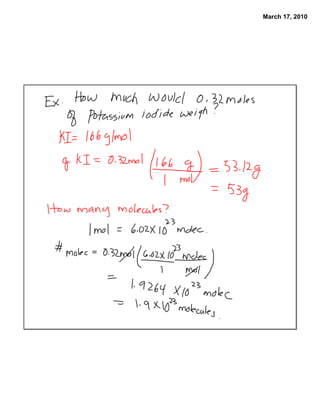 March 17, 2010
Ex. How much would 0.32 moles
of Potassium iodide weigh?
KI = 166 g/mol
g KI = 0.32mol (166 g / 1 mol) = 53.12g
= 53g
How many molecules?
1 mol = 6.02X10²³ molec.
# molec = 0.32mol (6.02X10²³ molec / 1 mol)
= 1.9264 X10²³ molec
= 1.9 X10²³ molecules.